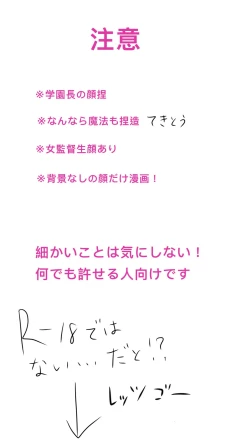 注意
※学園長の顔捏
※なんなら魔法も捏造 てきとう
※女監督生顔あり
※背景なしの顔だけ漫画！
細かいことは気にしない！
何でも許せる人向けです
R-18では
ない...だと!?
レッツゴー